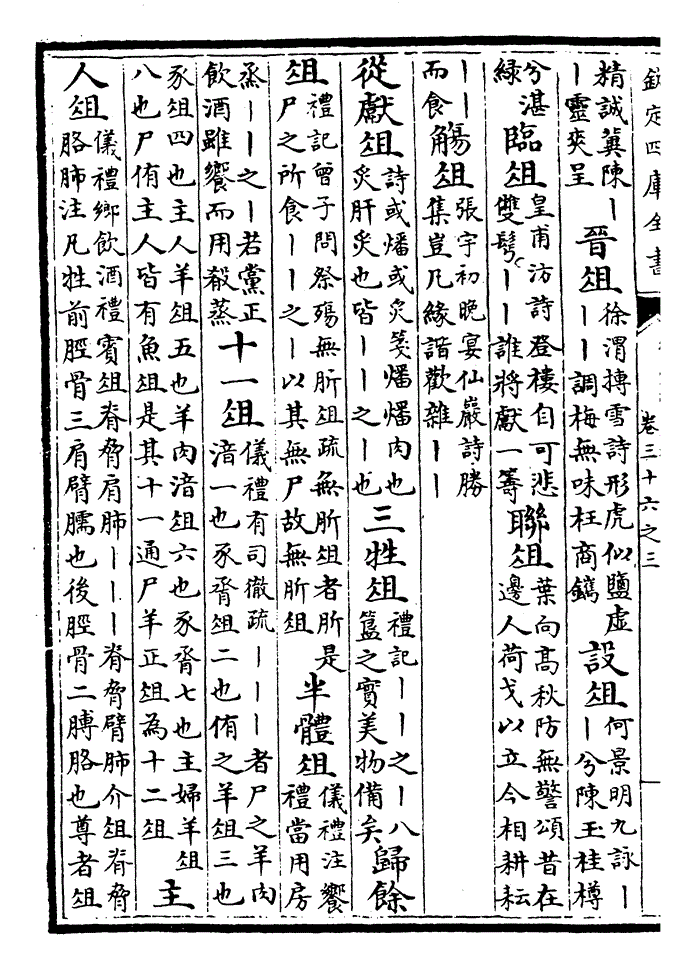 欽定四庫全書
卷三十六之三
精誠冀陳丨丨靈爽呈 晉俎 徐渭摶雪詩形虎似鹽虛丨丨調梅無味枉商鐫 設俎 何景明九詠丨丨兮陳玉桂樽
兮湛綠 臨俎 皇甫汸詩登樓自可悲雙髩丨丨誰將獻一籌 聯俎 葉向高秋防無警頌昔在邊人荷戈以立今相耕耘
丨丨而食 觴俎 張宇初晚宴仙巖詩勝集豈凡緣諧歡雜丨丨
從獻俎 詩或燔或炙箋燔燔肉也炙肝炙也皆丨丨之丨也 三牲俎 禮記丨丨之丨八簋之實美物備矣 歸餘
俎 禮記曾子問祭殤無肵俎疏無肵俎者肵是尸之所食丨丨之丨以其無尸故無肵俎 半體俎 儀禮注饗禮當用房
烝丨丨之丨若黨正飲酒雖饗而用殽蒸 十一俎 儀禮有司徹疏丨丨丨者尸之羊肉湆一也豕脀俎二也侑之羊俎三也
豕俎四也主人羊俎五也羊肉湆俎六也豕脀七也主婦羊俎八也尸侑主人皆有魚俎是其十一通尸羊正俎為十二俎 主
人俎 儀禮鄉飲酒禮賓俎脊脅肩肺丨丨丨脊脅臂肺介俎脊脅胳肺注凡牲前脛骨三肩臂臑也後脛骨二膊胳也尊者俎